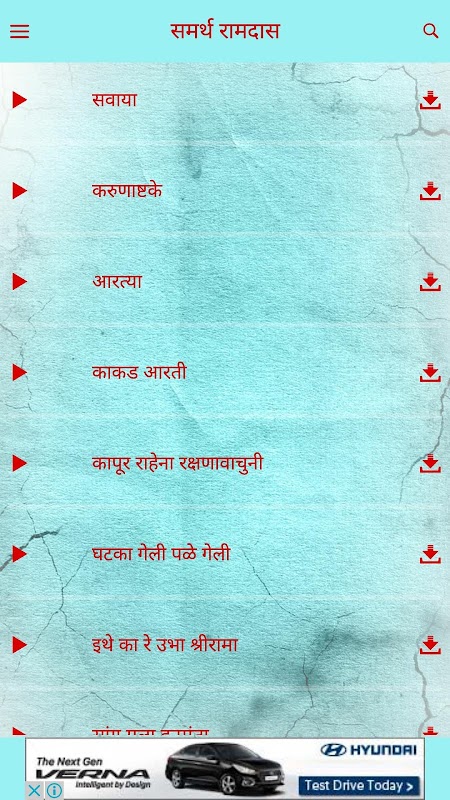 समर्थ रामदास
सवाया
करुणाष्टके
आरत्या
काकड आरती
कापूर राहेना रक्षणावाचुनी
घटका गेली पळे गेली
इथे का रे उभा श्रीरामा
The Next Gen
VERNA
Intelligent by Design
HYUNDAI
Test Drive Today >